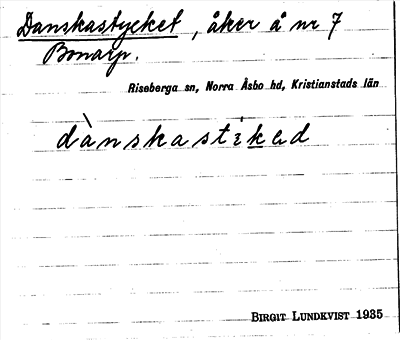 Danskastycket, åker å nr 7
Bonarp.
Riseberga sn, Norra Åsbo hd, Kristianstads län
BIRGIT LUNDKVIST 1935